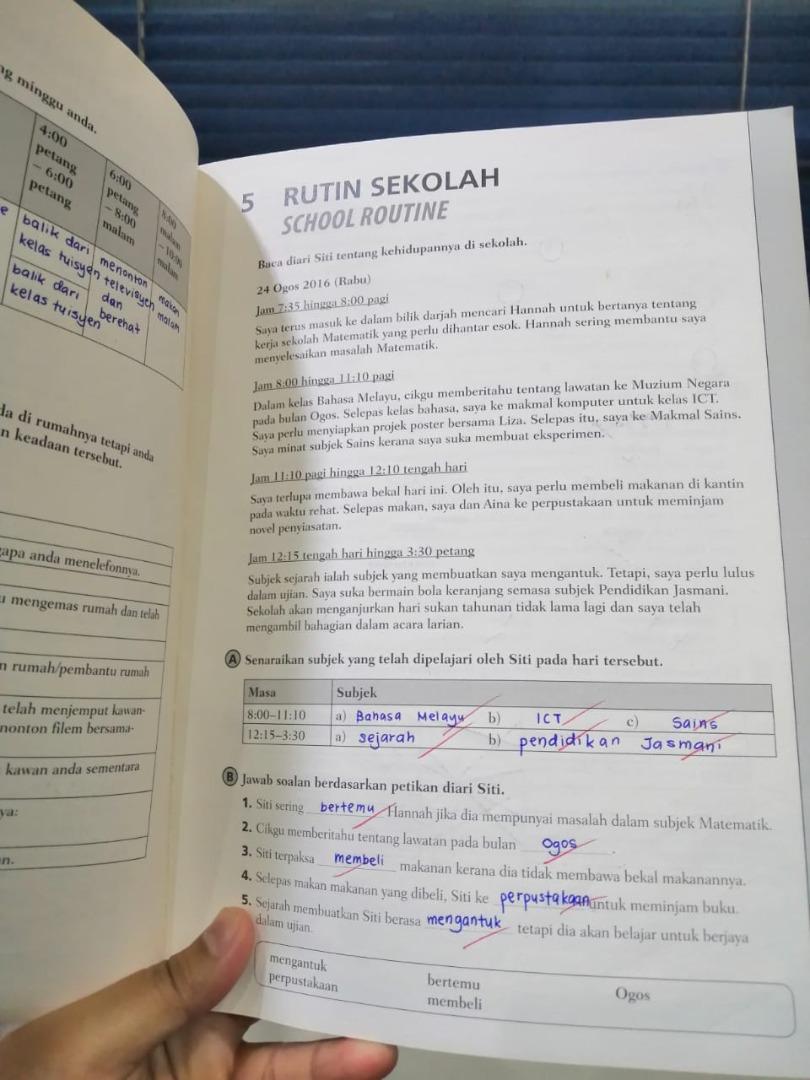 ng minggu anda.
4:00 petang – 6:00 petang
6:00 petang – 8:00 malam
8:00 malam – 10:00 malam
balik dari kelas tuisyen
menonton televisyen dan berehat
makan malam
balik dari kelas tuisyen
da di rumahnya tetapi anda
n keadaan tersebut.
apa anda menelefonnya.
u mengemas rumah dan telah
n rumah/pembantu rumah
telah menjemput kawan-
nonton filem bersama-
kawan anda sementara
ya:
n.
5 RUTIN SEKOLAH
SCHOOL ROUTINE
Baca diari Siti tentang kehidupannya di sekolah.
24 Ogos 2016 (Rabu)
Jam 7:35 hingga 8:00 pagi
Saya terus masuk ke dalam bilik darjah mencari Hannah untuk bertanya tentang
kerja sekolah Matematik yang perlu dihantar esok. Hannah sering membantu saya
menyelesaikan masalah Matematik.
Jam 8:00 hingga 11:10 pagi
Dalam kelas Bahasa Melayu, cikgu memberitahu tentang lawatan ke Muzium Negara
pada bulan Ogos. Selepas kelas bahasa, saya ke makmal komputer untuk kelas ICT.
Saya perlu menyiapkan projek poster bersama Liza. Selepas itu, saya ke Makmal Sains.
Saya minat subjek Sains kerana saya suka membuat eksperimen.
Jam 11:10 pagi hingga 12:10 tengah hari
Saya terlupa membawa bekal hari ini. Oleh itu, saya perlu membeli makanan di kantin
pada waktu rehat. Selepas makan, saya dan Aina ke perpustakaan untuk meminjam
novel penyiasatan.
Jam 12:15 tengah hari hingga 3:30 petang
Subjek sejarah ialah subjek yang membuatkan saya mengantuk. Tetapi, saya perlu lulus
dalam ujian. Saya suka bermain bola keranjang semasa subjek Pendidikan Jasmani.
Sekolah akan menganjurkan hari sukan tahunan tidak lama lagi dan saya telah
mengambil bahagian dalam acara larian.
A Senaraikan subjek yang telah dipelajari oleh Siti pada hari tersebut.
Masa Subjek
8:00–11:10 a) Bahasa Melayu b) ICT c) Sains
12:15–3:30 a) sejarah b) pendidikan Jasmani
B Jawab soalan berdasarkan petikan diari Siti.
1. Siti sering bertemu Hannah jika dia mempunyai masalah dalam subjek Matematik.
2. Cikgu memberitahu tentang lawatan pada bulan Ogos.
3. Siti terpaksa membeli makanan kerana dia tidak membawa bekal makanannya.
4. Selepas makan makanan yang dibeli, Siti ke perpustakaan untuk meminjam buku.
5. Sejarah membuatkan Siti berasa mengantuk tetapi dia akan belajar untuk berjaya
dalam ujian.
mengantuk bertemu Ogos
perpustakaan membeli